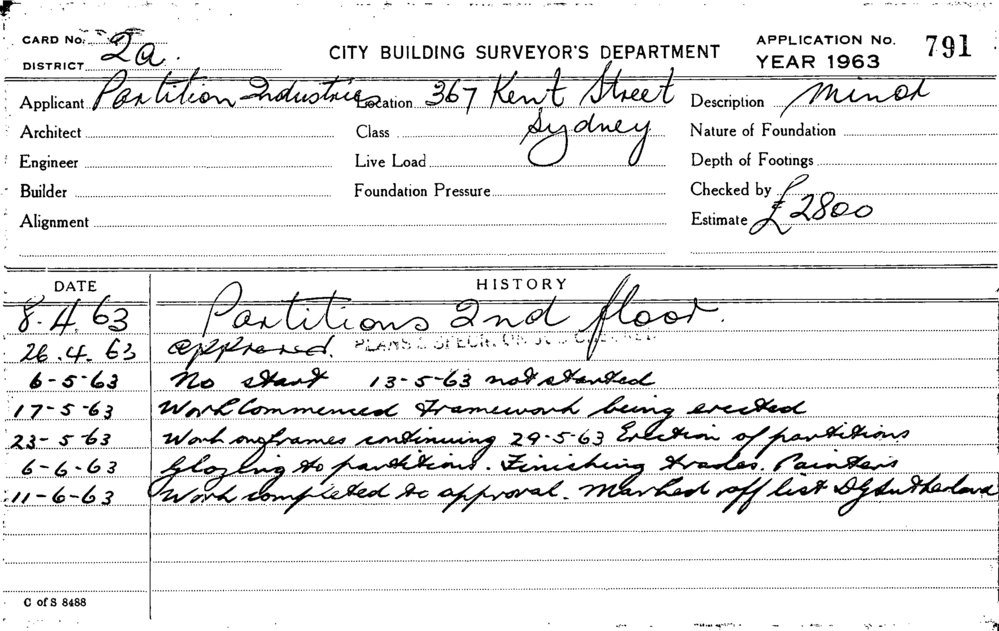 CARD No.
DISTRICT 2a.
CITY BUILDING SURVEYOR'S DEPARTMENT
APPLICATION No. 791
YEAR 1963
Applicant Partition Industries Location 367 Kent Street Description Minor
Architect Class Sydney Nature of Foundation
Engineer Live Load Depth of Footings
Builder Foundation Pressure Checked by
Alignment Estimate £2800
DATE HISTORY
8.4.63 Partitions 2nd floor.
26.4.63 approved. PLANS & SPECN.
6-5-63 No start 13-5-63 not started
17-5-63 Work Commenced Framework being erected
23-5-63 Work on frames continuing 29-5-63 Erection of partitions
6-6-63 Glazing to partitions. Finishing trades. Painters
11-6-63 Work completed to approval. Marked off list DGSutherland
C of S 8488